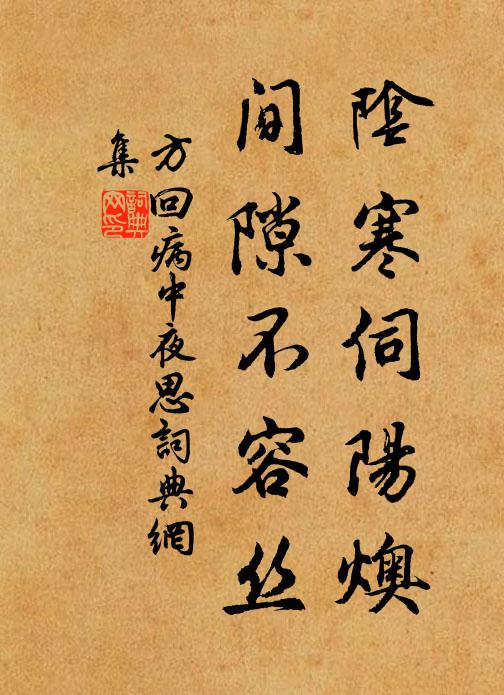 陰寒伺陽燠
间隙不容丝
方回病中夜思詞典網
集
詞典
网印